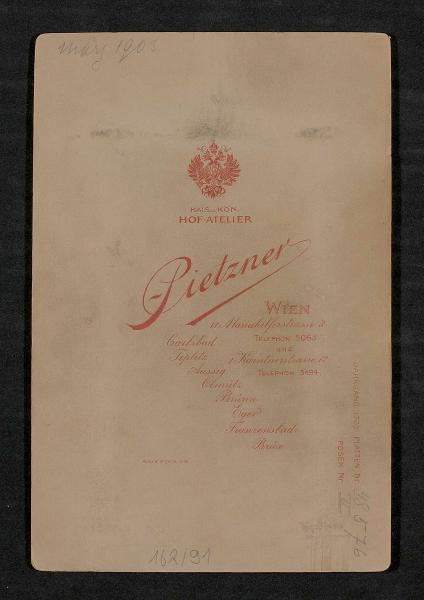 März 1903
KAIS. u. KÖN.
HOF-ATELIER
Pietzner
WIEN
II. Mariahilferstrasse 3
TELEPHON 5063
und
I. Kärntnerstrasse 12
TELEPHON 3494
Carlsbad
Teplitz
Aussig
Olmütz
Brünn
Eger
Franzensbad
Brüx
JAHRGANG 1902 PLATTEN Nr 48576
POSEN Nr II
162/91